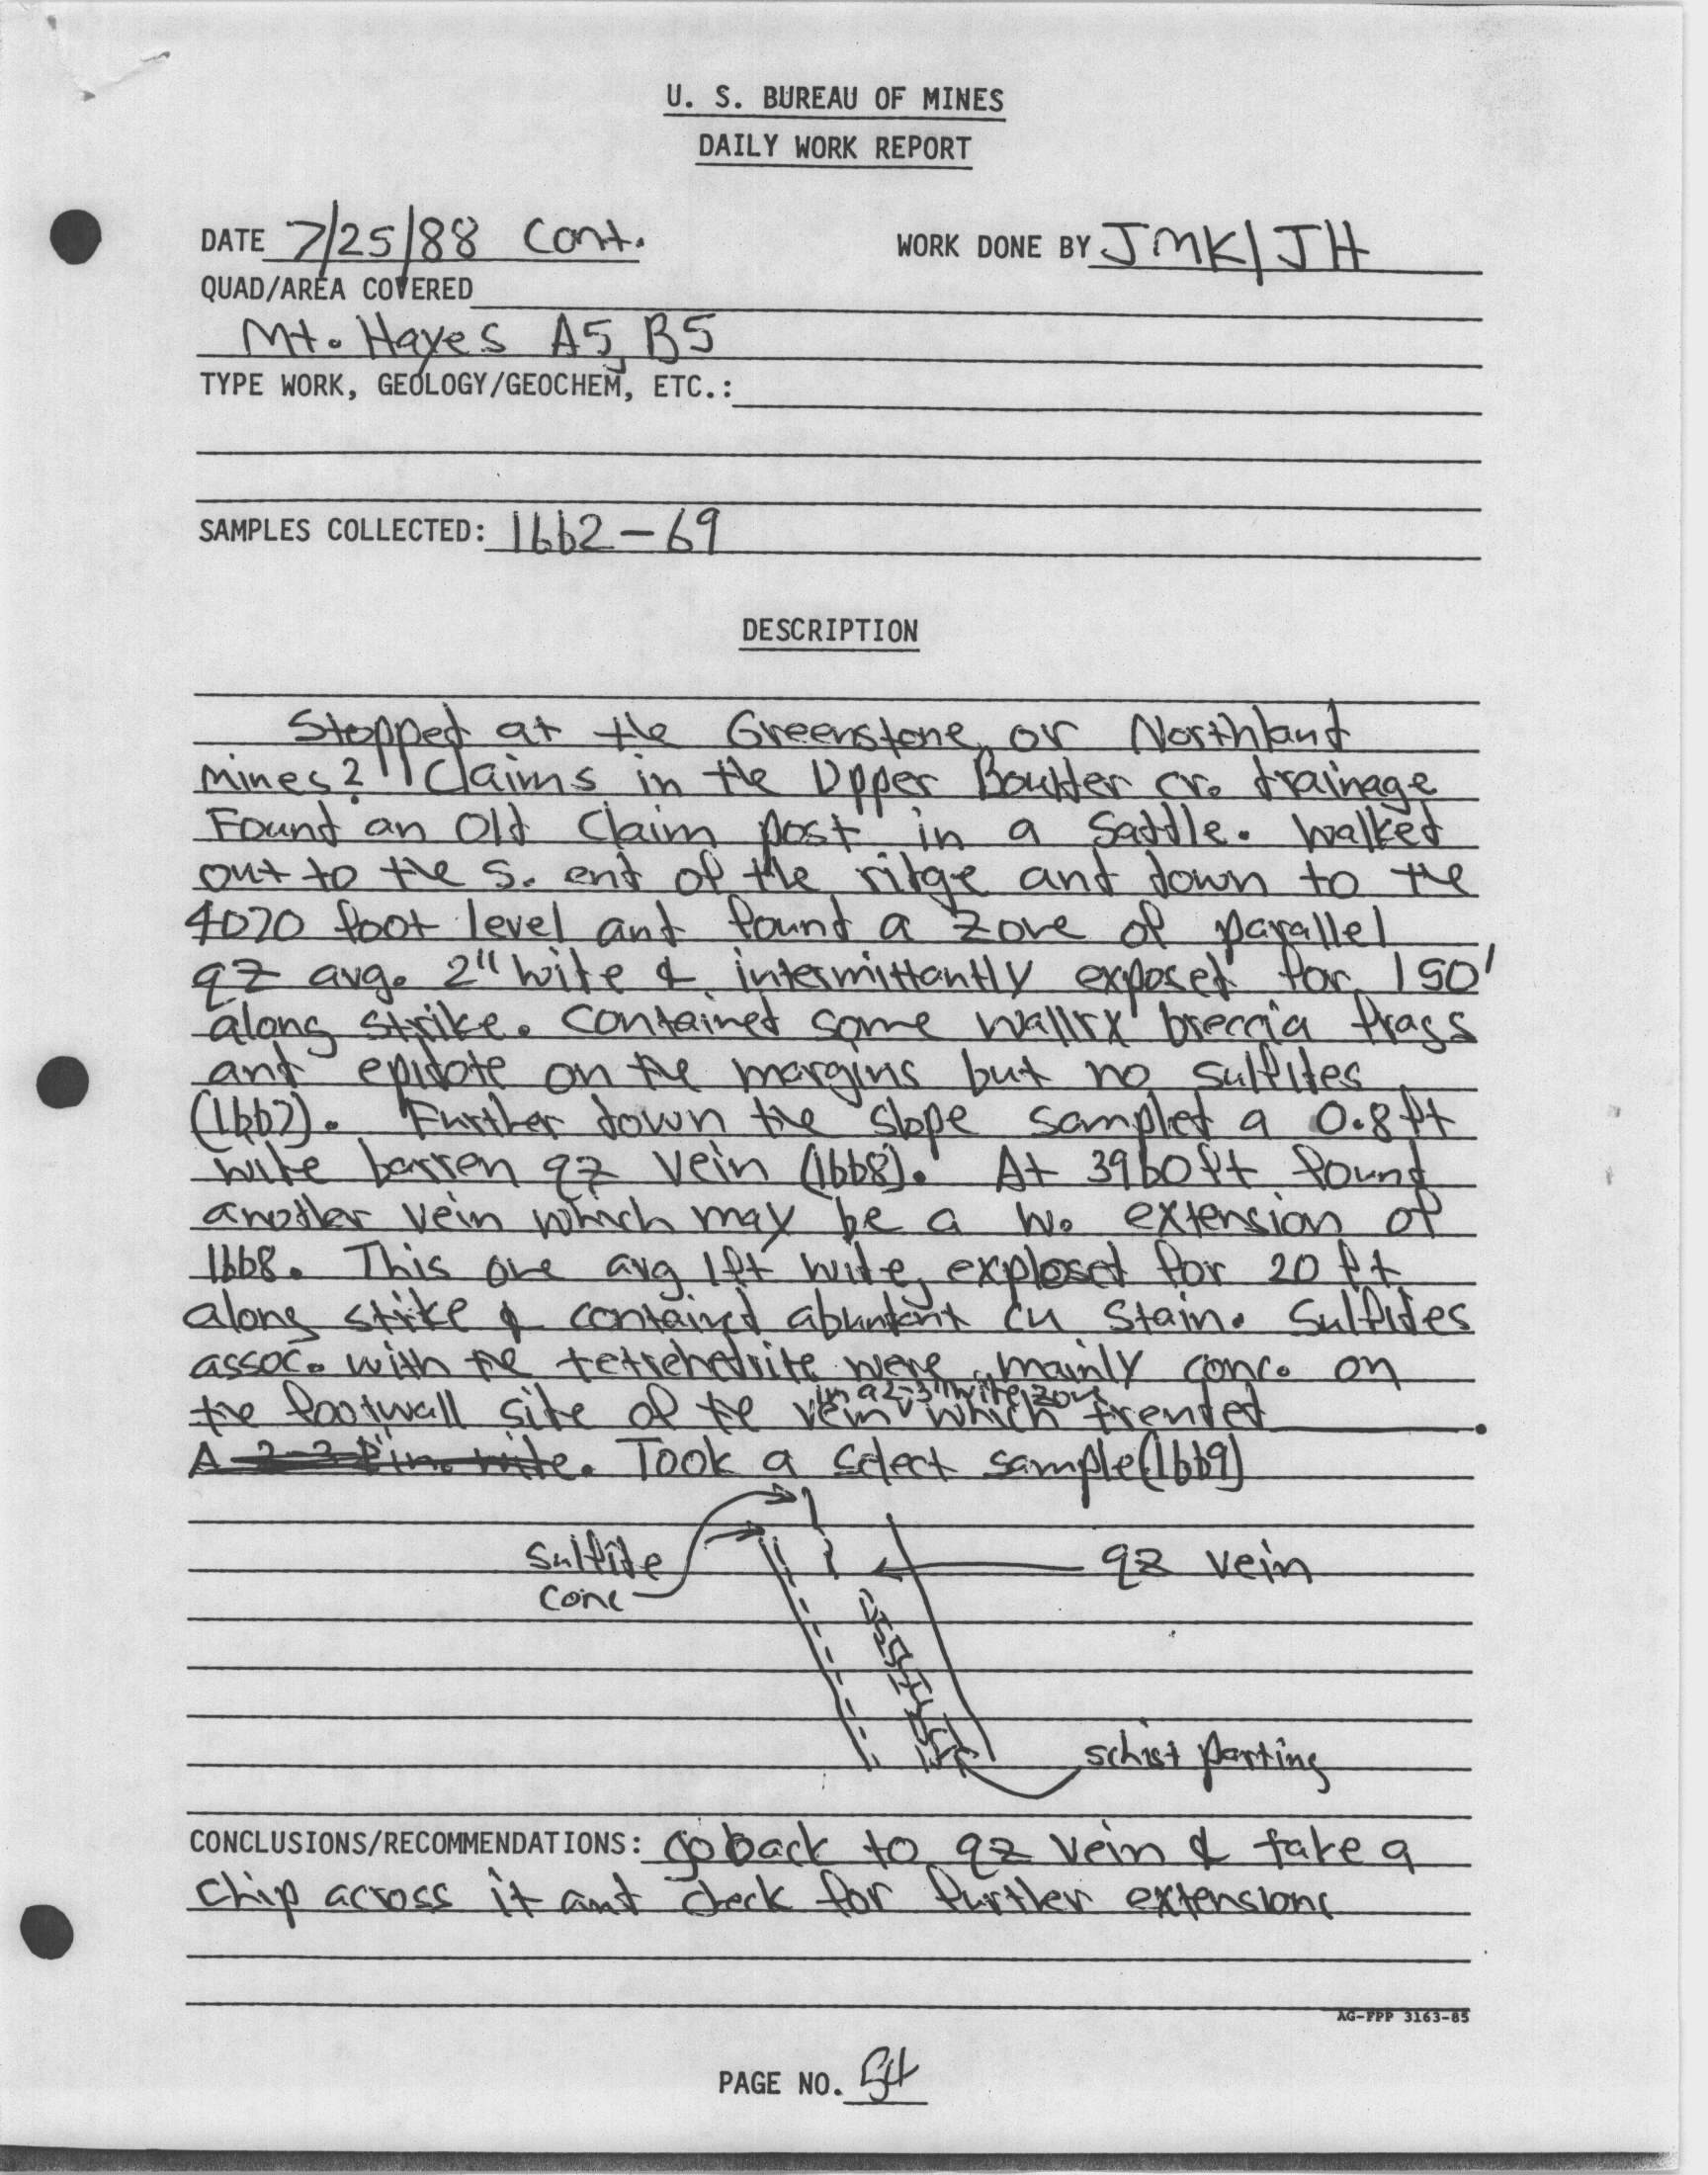 U. S. BUREAU OF MINES
DAILY WORK REPORT
DATE 7/25/88 Cont. WORK DONE BY JMK/JH
QUAD/AREA COVERED
Mt. Hayes A5, B5
TYPE WORK, GEOLOGY/GEOCHEM, ETC.:
SAMPLES COLLECTED: 1662-69
DESCRIPTION
Stopped at the Greenstone, or Northland
Mines? Claims in the Upper Boulder cr. drainage
Found an old claim post in a saddle. Walked
out to the S. end of the ridge and down to the
4070 foot level and found a zone of parallel
qz avg. 2" wide & intermittantly exposed for 150'
along strike. Contained some wallrx breccia frags
and epidote on the margins but no sulfides
(1667). Further down the slope sampled a 0.8 ft
wide barren qz vein (1668). At 3960 ft found
another vein which may be a W. extension of
1668. This one avg 1ft wide, explosed for 20 ft
along stike & contained abundant cu stain. Sulfides
assoc. with the tetrehedrite were mainly conc. on
in a 2-3" wide zone
the footwall side of the vein which trended .
A 2-3 in. wide. Took a select sample (1669)
sulfide
conc
qz vein
schist parting
CONCLUSIONS/RECOMMENDATIONS: go back to qz vein & take a
chip across it and check for further extensions
AG-FPP 3163-85
PAGE NO. 54